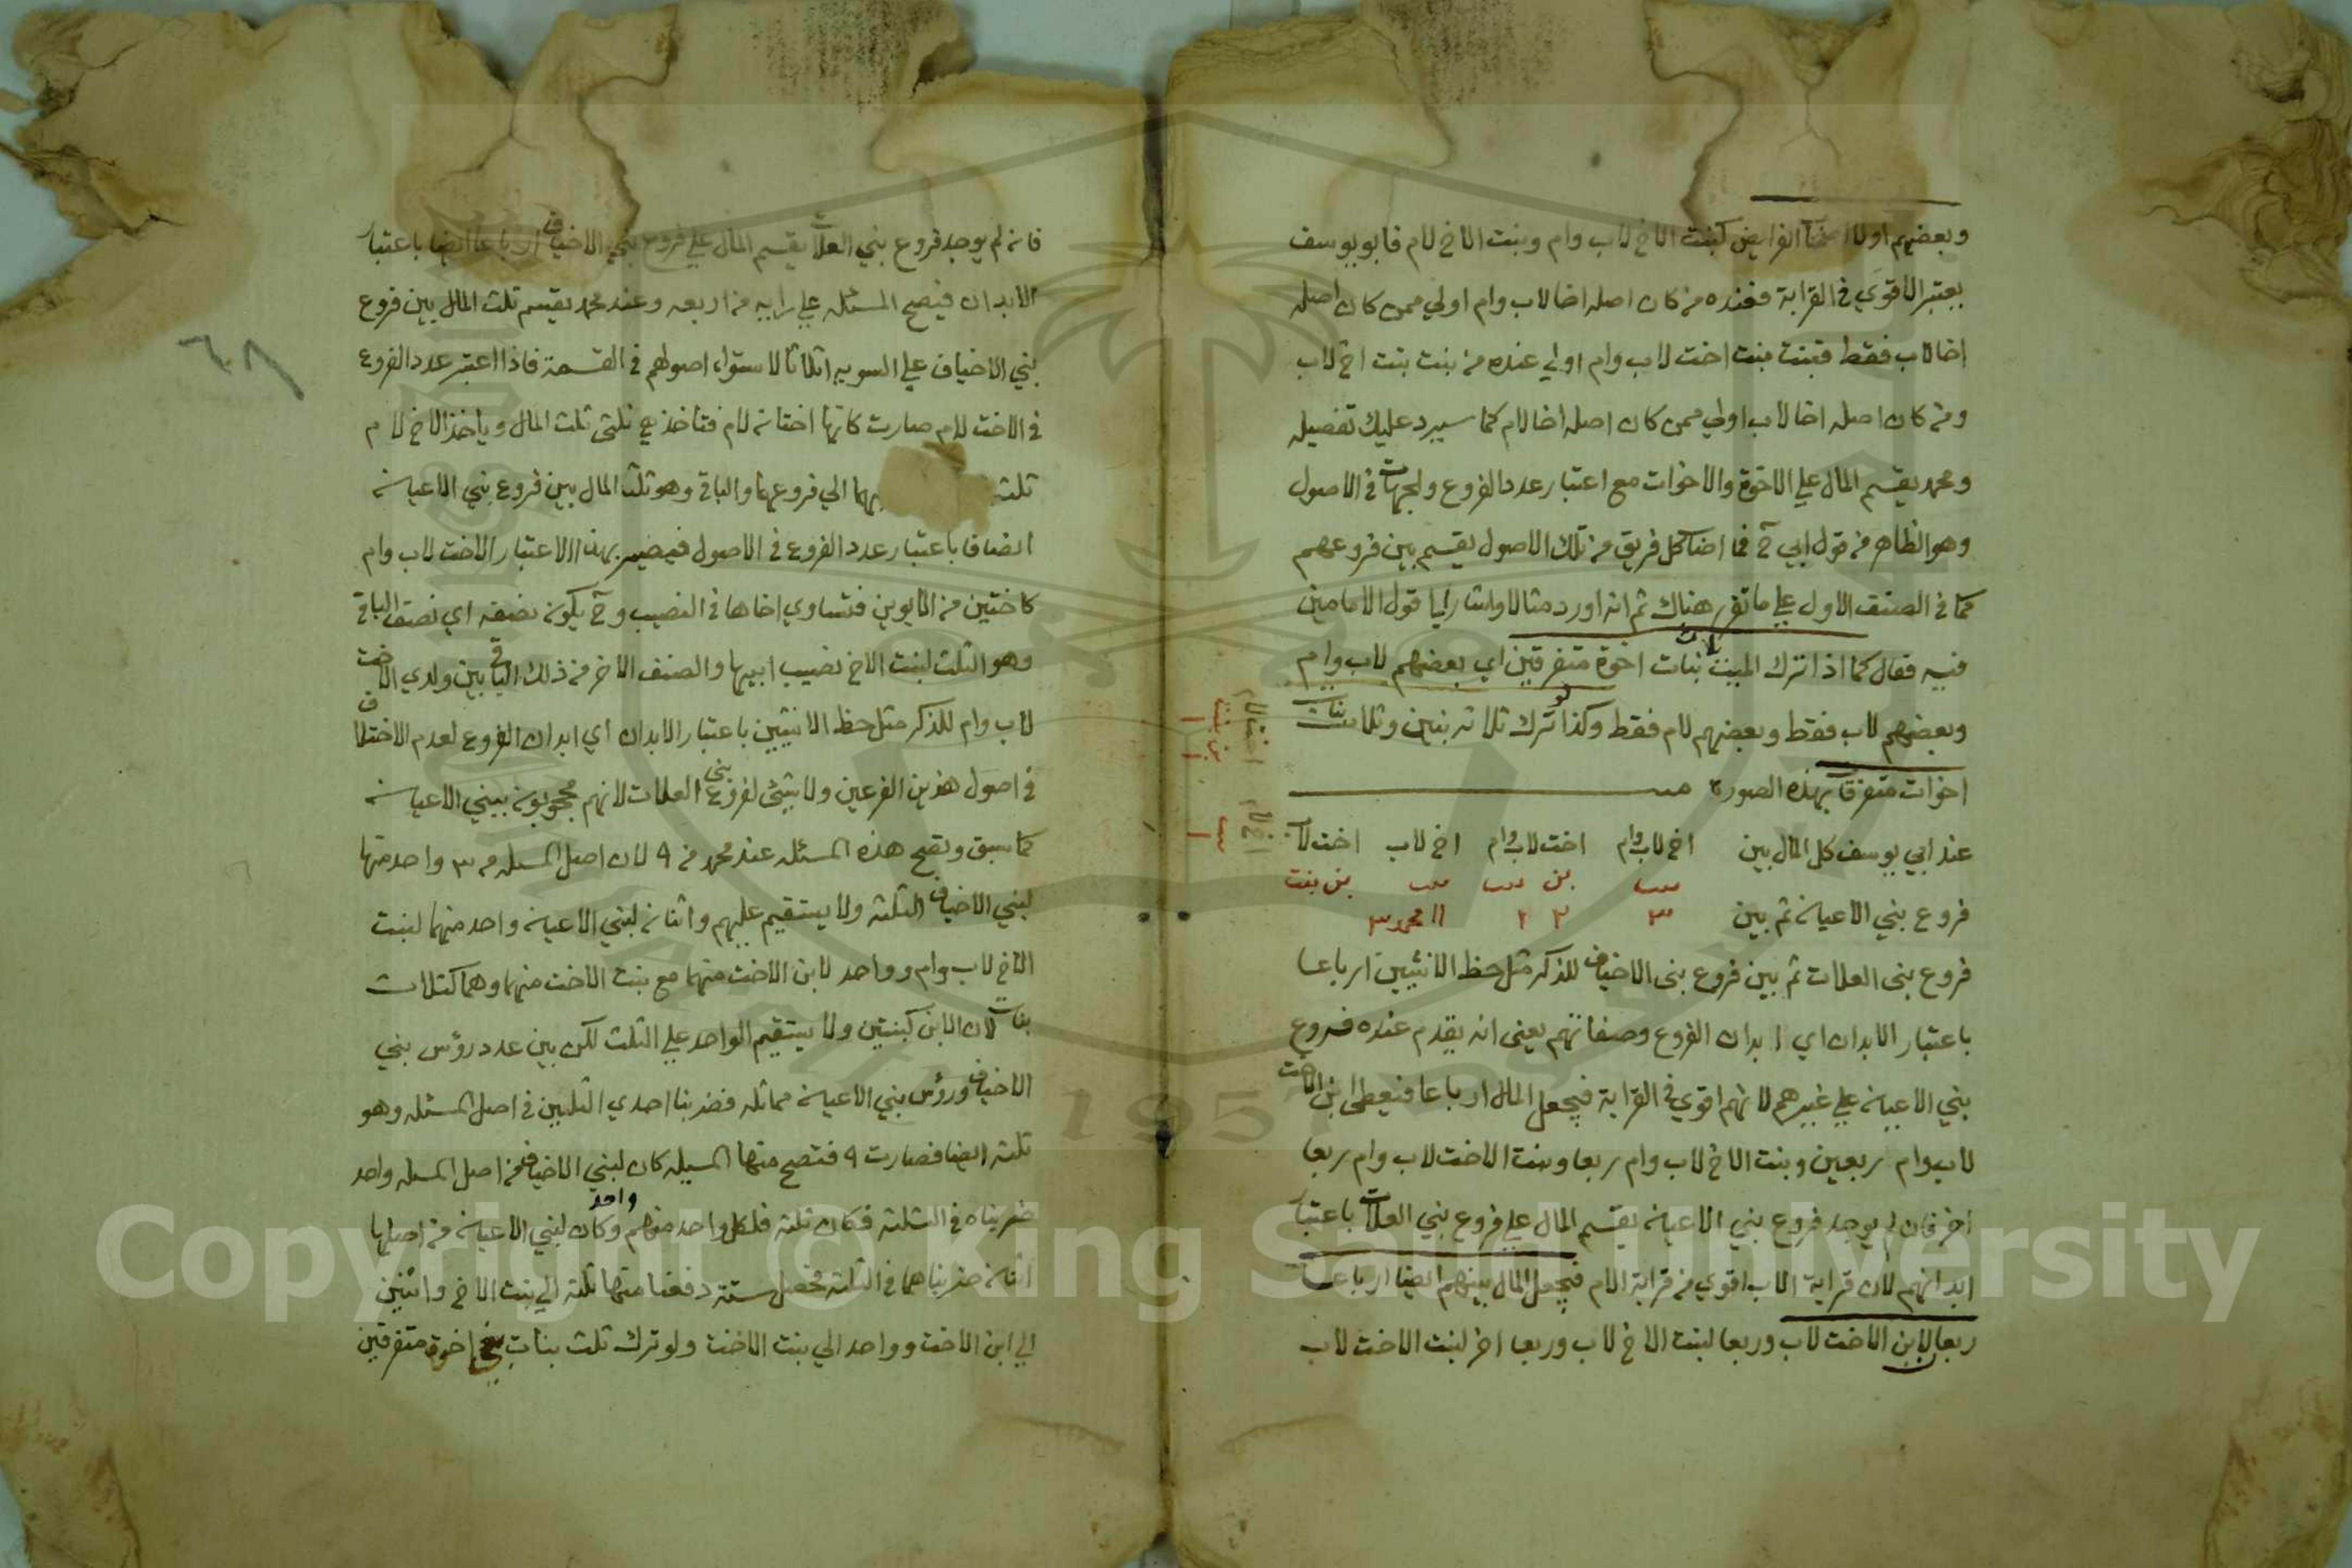 وبعضهم اولاد اصحاب الفرايض كبنت الاخ لاب وام وبنت الاخ لام فابو يوسف
يعتبر الاقوي في القرابة فعنده من كان اصله اخا لاب وام اولي ممن كان اصله
اخا لاب فقط فبنت بنت اخت لاب وام اولي عنده من بنت بنت اخ لاب
ومن كان اصله اخا لاب اولي ممن كان اصله اخا لام كما سيرد عليك تفصيله
ومحمد يقسم المال علي الاخوة والاخوات مع اعتبار عدد الفروع والجهات في الاصول
وهو الظاهر من قول ابي ح فما اصاب كل فريق من تلك الاصول يقسم بين فروعهم
كما في الصنف الاول علي ما تقرر هناك ثم انه اورد مثالا واشار الي قول الامامين
فيه فقال كما اذا ترك الميت ثلاث بنات اخوة متفرقين اي بعضهم لاب وام
وبعضهم لاب فقط وبعضهم لام فقط وكذا لو ترك ثلاثه بنين وثلاث بنات
اخوات متفرقات بهذه الصورة
عند ابي يوسف كل المال بين اخ لاب وام اخت لاب وام اخ لاب اخت لاب
اخت لام
اخ لام
بنت بن بنت بنت بن بنت
بن بنت
بنت
فروع بني الاعيان ثم بين ٣ ٢ ١ محمد ٣
فروع بني العلات ثم بين فروع بني الاخياف للذكر مثل حظ الانثيين ارباعا
باعتبار الابدان اي ابدان الفروع وصفاتهم يعني انه يقدم عنده فروع
بني الاعيان علي غيرهم لانهم اقوي في القرابة فيجعل المال ارباعا فيعطي ابن الاخت
لاب وام ربعين وبنت الاخ لاب وام ربعا وبنت الاخت لاب وام ربعا
اخر فان لم يوجد فروع بني الاعيان يقسم المال علي فروع بني العلات باعتبار
ابدانهم لان قرابة الاب اقوي من قرابة الام فيجعل المال بينهم ايضا ارباعا
ربعا لابن الاخت لاب وربعا لبنت الاخ لاب وربعا اخر لبنت الاخت لاب
فان لم يوجد فروع بني العلات يقسم المال علي فروع بني الاخياف ارباعا ايضا باعتبار
الابدان فيصح المسئله علي رايه من اربعه وعند محمد يقسم ثلث المال بين فروع
بني الاخياف علي السويه اثلاثا لاستواء اصولهم في القسمة فاذا اعتبر عدد الفروع
في الاخت لام صارت كانها اختان لام فتاخذ ثلثي ثلث المال وياخذ الاخ لام
ثلث الي فروعهما والباقي وهو ثلثا المال بين فروع بني الاعيان
انصافا باعتبار عدد الفروع في الاصول فيصير بهذا الاعتبار الاخت لاب وام
كاختين من الابوين فتساوي اخاها في النصيب وح يكون نصفه اي نصف الباقي
وهو الثلث لبنت الاخ نصيب ابيها والصنف الاخر من ذلك الباقي بين ولدي الاخت
لاب وام للذكر مثل حظ الانثيين باعتبار الابدان اي ابدان الفروع لعدم الاختلاف
في اصول هذين الفرعين ولا شئ لفروع بني العلات لانهم محجوبون ببني الاعيان
كما سبق وتصح هذه المسئله عند محمد من ٩ لان اصل المسئله من ٣ واحد منها
لبني الاخياف الثلثه ولا يستقيم عليهم واثنان لبني الاعيان واحد منهما لبنت
الاخ لاب وام وواحد لابن الاخت منهما مع بنت الاخت منهما وهما كثلاث
بنات لان الابن كبنتين ولا يستقيم الواحد علي الثلث لكن بين عدد رؤس بني
الاخياف ورؤس بني الاعيان مماثله فضربنا احدي الثلثين في اصل المسئله وهو
ثلثه ايضا فصارت ٩ فتصح منها المسئله كان لبني الاخياف من اصل المسئله واحد
ضربناه في الثلثه فكان ثلثه فلكل واحد منهم واحد وكان لبني الاعيان من اصلها
اثنان ضربناهما في الثلثه فحصل ستة دفعنا منها ثلثه الي بنت الاخ واثنين
الي ابن الاخت وواحد الي بنت الاخت ولو ترك ثلث بنات بني اخوة متفرقين
٦٨
Copyright © King Saud University
1957